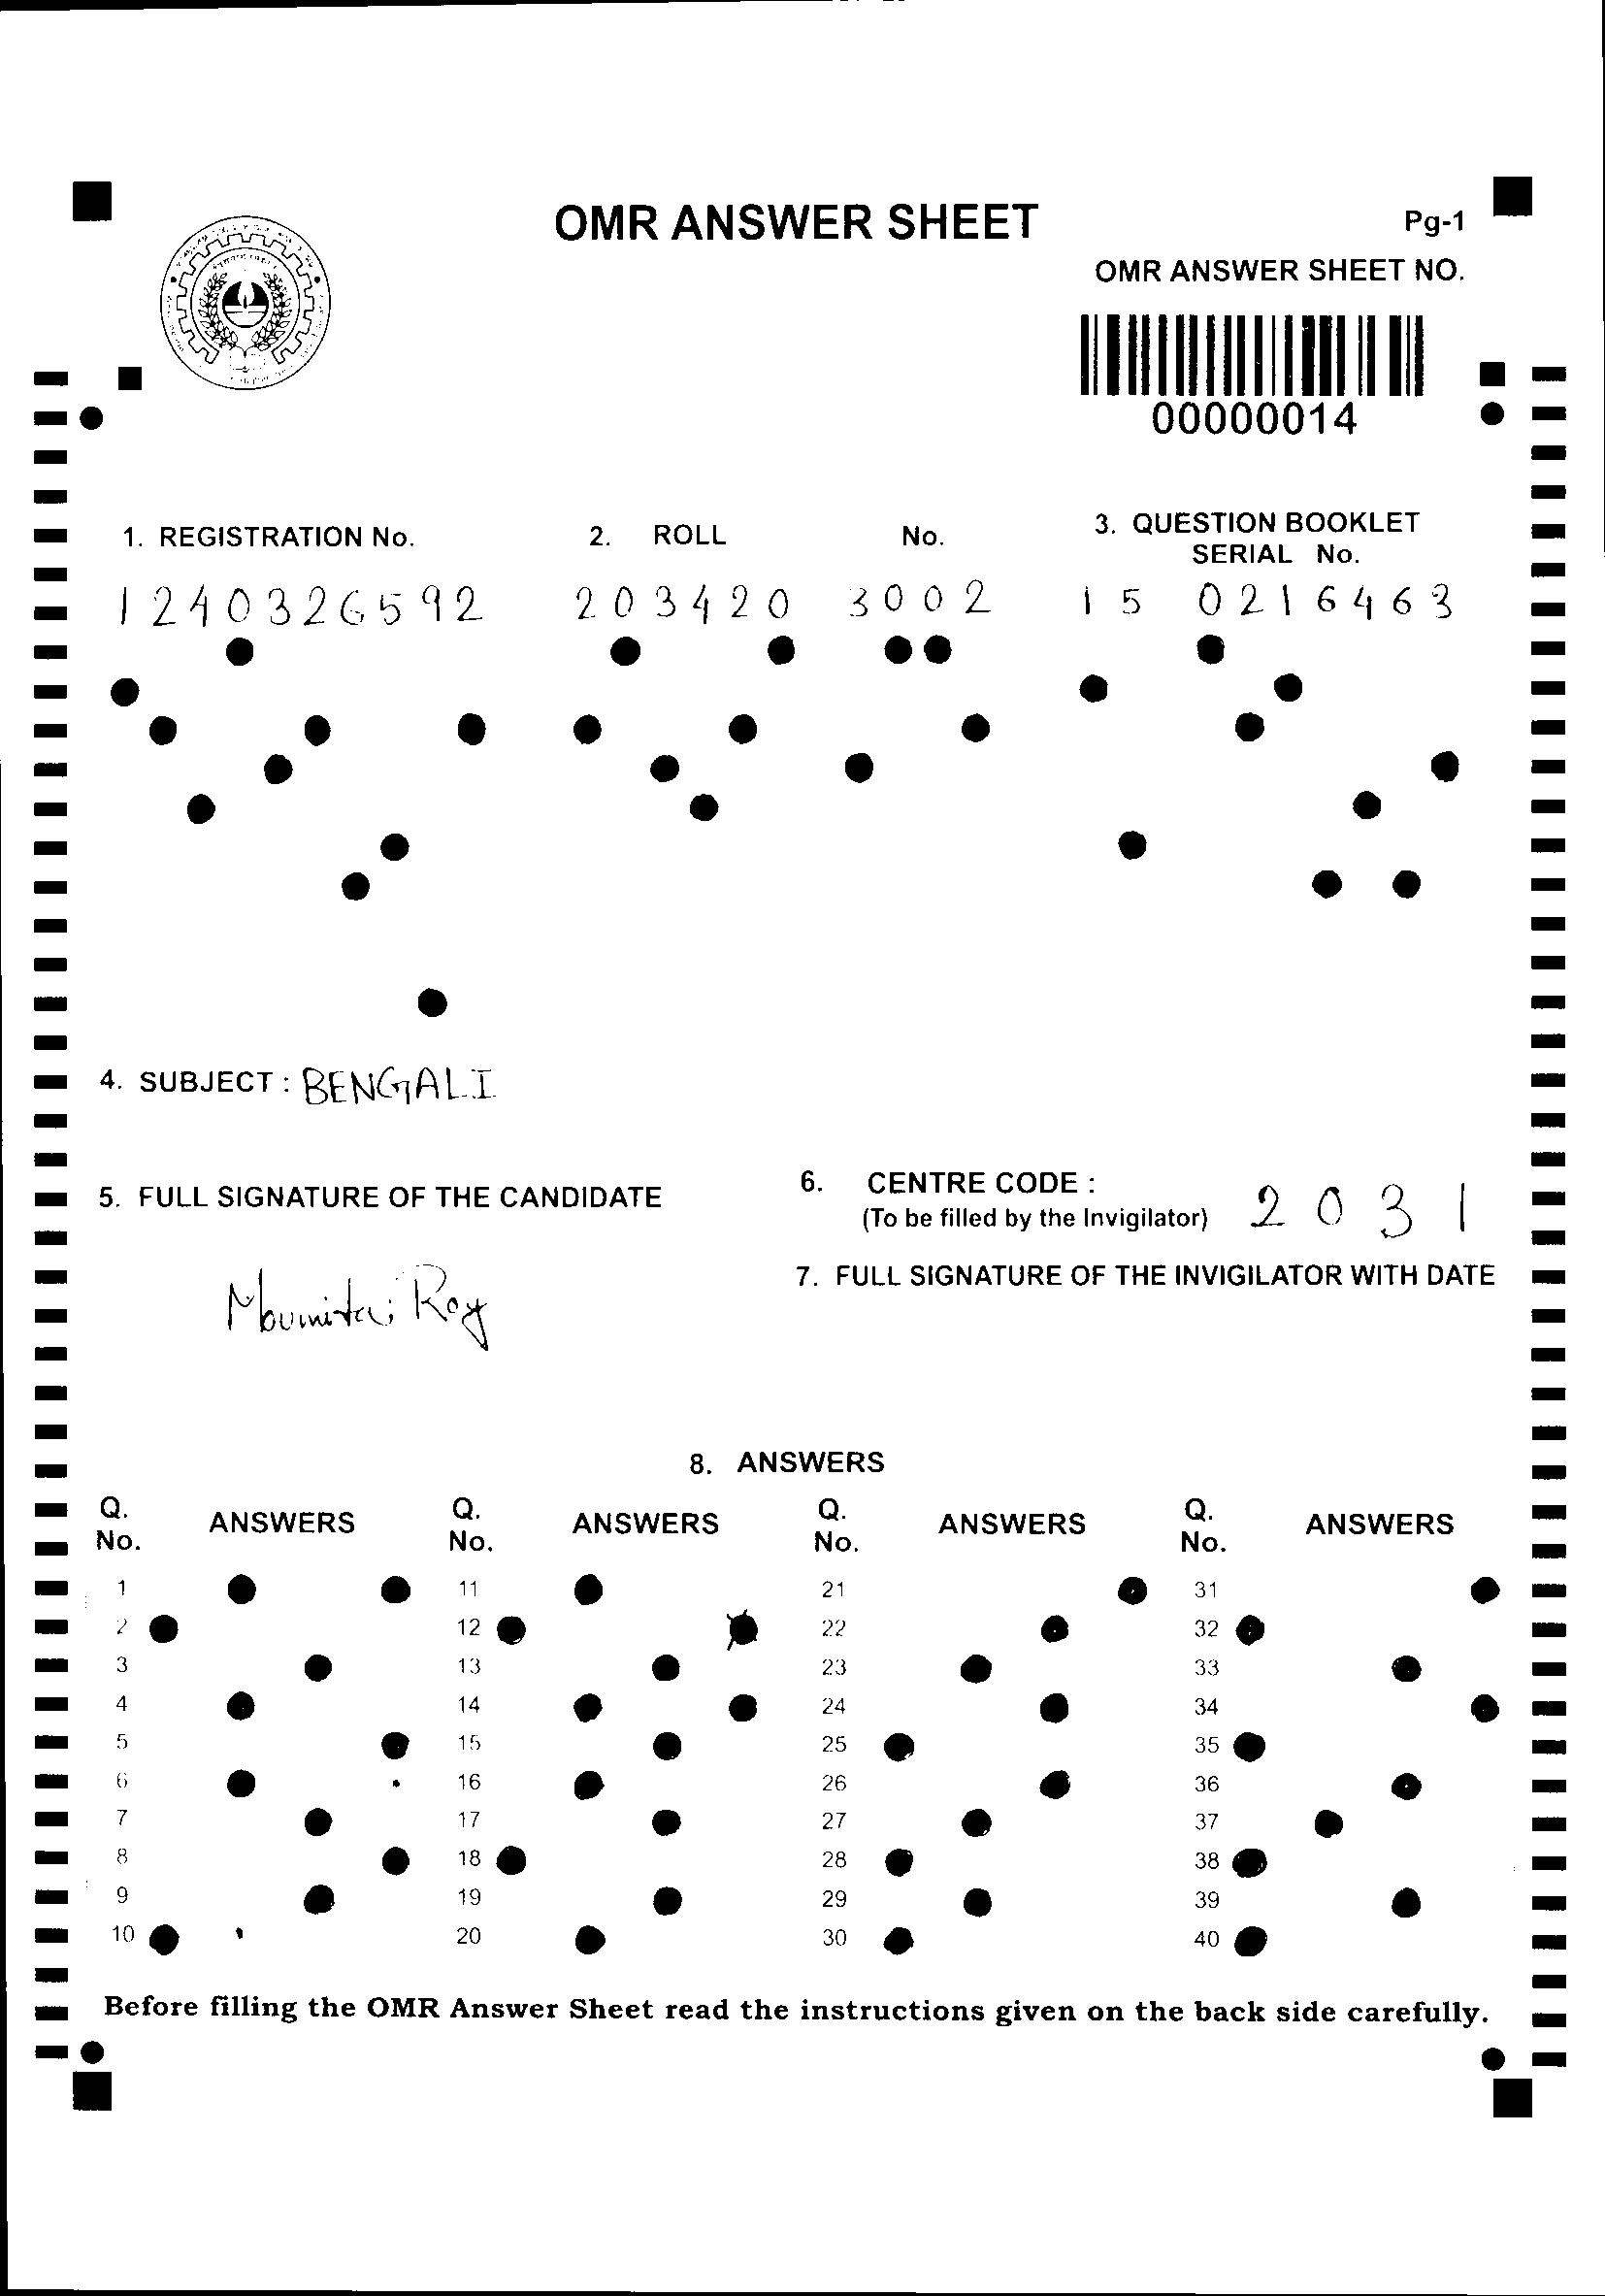 OMR ANSWER SHEET
Pg-1
OMR ANSWER SHEET NO.
00000014
1. REGISTRATION No.
1240326592
2. ROLL No.
203420 3002
3. QUESTION BOOKLET
SERIAL No.
15 0216463
4. SUBJECT : BENGALI
5. FULL SIGNATURE OF THE CANDIDATE
Moumita Roy
6. CENTRE CODE : 2031
(To be filled by the Invigilator)
7. FULL SIGNATURE OF THE INVIGILATOR WITH DATE
8. ANSWERS
Q. No. ANSWERS Q. No. ANSWERS Q. No. ANSWERS Q. No. ANSWERS
1 11 21 31
2 12 22 32
3 13 23 33
4 14 24 34
5 15 25 35
6 16 26 36
7 17 27 37
8 18 28 38
9 19 29 39
10 20 30 40
Before filling the OMR Answer Sheet read the instructions given on the back side carefully.